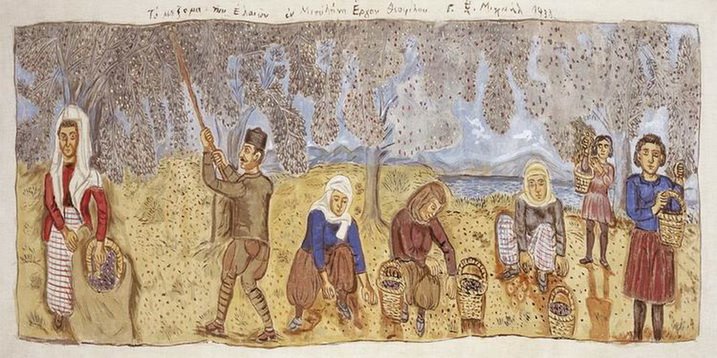 Τό μάζομα των Ελαιων έν Μυτιλήνη Εργον Θεοφίλου Γ. Χ. Μιχαήλ 1933